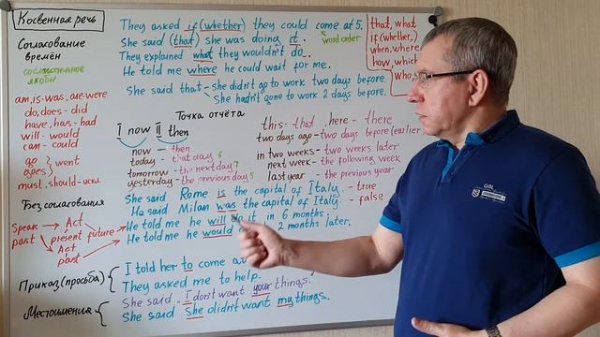 Косвенная речь
They asked if (whether) they could come at 5.
She said (that) she was doing it.
word order
They explained what they wouldn't do.
He told me where he could wait for me.
that, what
if (whether,)
when, where
how, which
who,
Согласование
времён
She said that
She didn't go to work two days before.
She hadn't gone to work 2 days before.
am, is-was, are-were
do, does - did
have, has - had
will - would
can - could
go
goes
went
must, should -
Точка отчёта
I now II then
now - then
today - that day
tomorrow - the next day
yesterday - the previous day
this - that
here - there
two days ago - two days before (earlier
in two weeks - two weeks later
next week - the following week
last year - the previous year
Без согласования
She said Rome is the capital of Italy. - true
He said Milan was the capital of Italy. - false
He told me he will do it in 6 months.
He told me he would 2 months later.
Speak
past
Act
present
future
Act
past
Приказ (просьба)
I told her to come
They asked me to help.
Местоимения
She said: I don't want your things.
She said She didn't want my things.
GBL